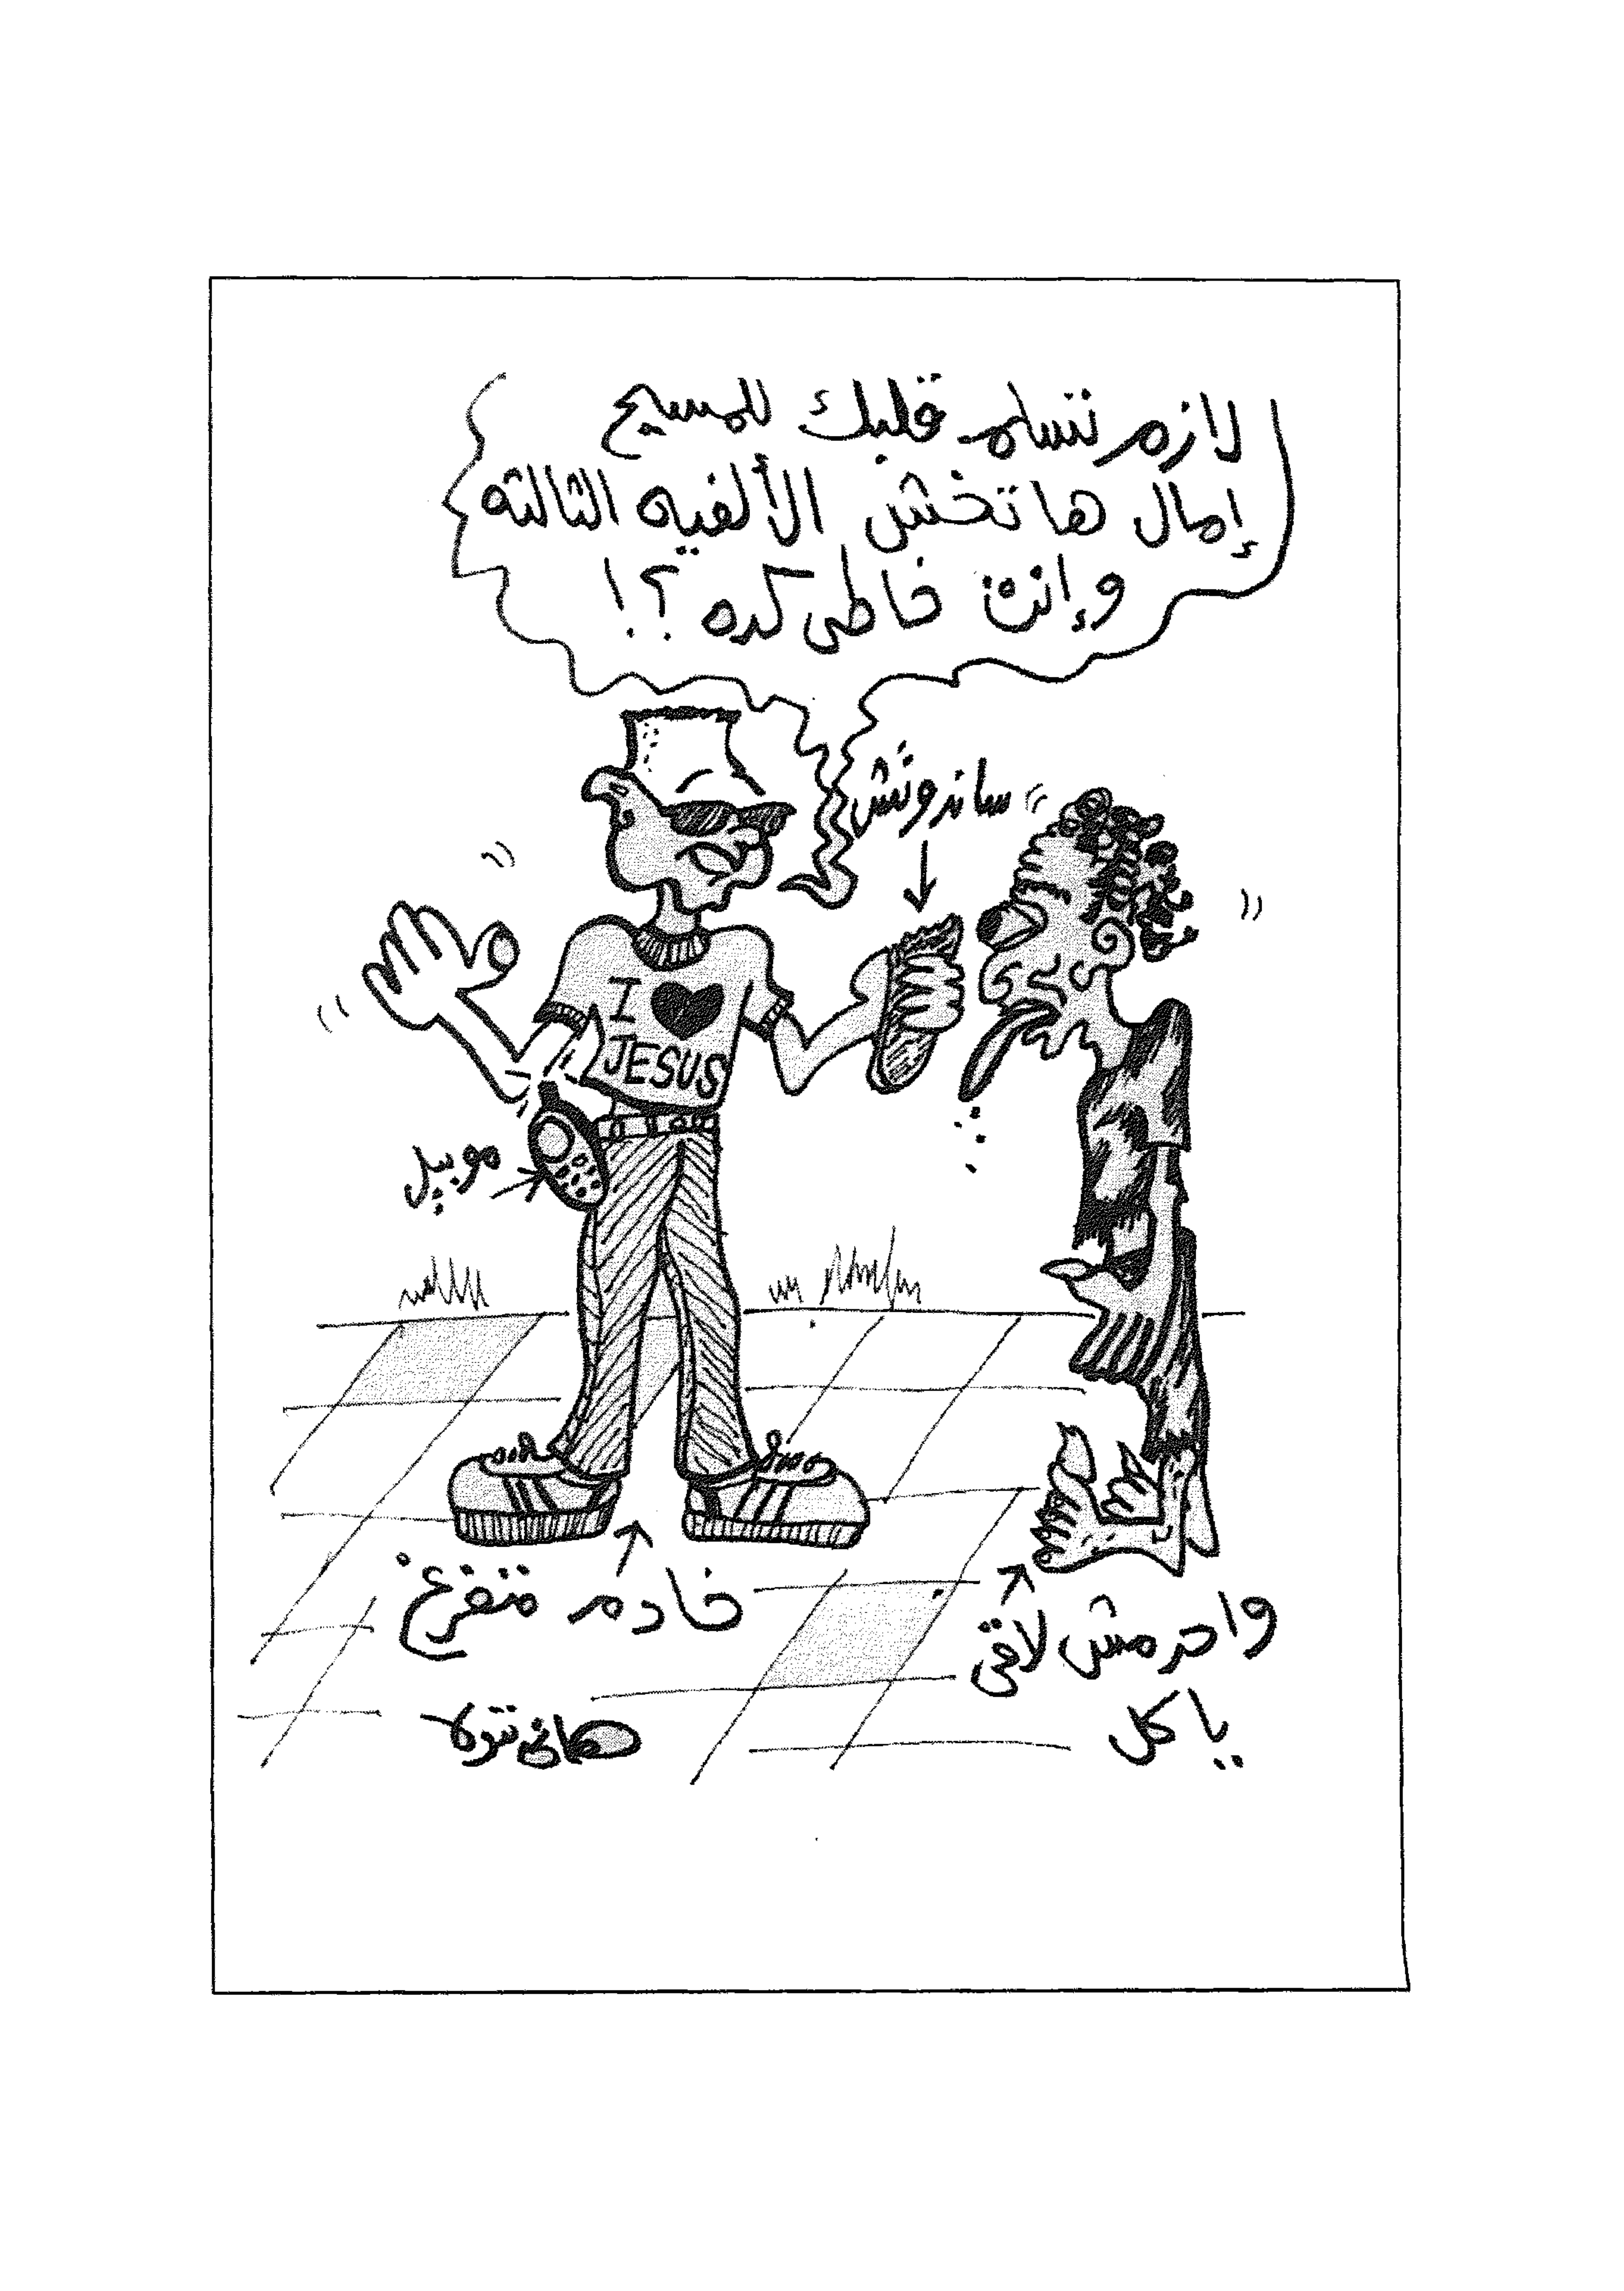 لازم تسلم قلبك للمسيح
إمال هاتخش الألفيه التالته
وإنت خاطي كده ؟!
ساندوتش
I ♥
JESUS
موبيل
خادم متفرغ
واحد مش لاقي
ياكل